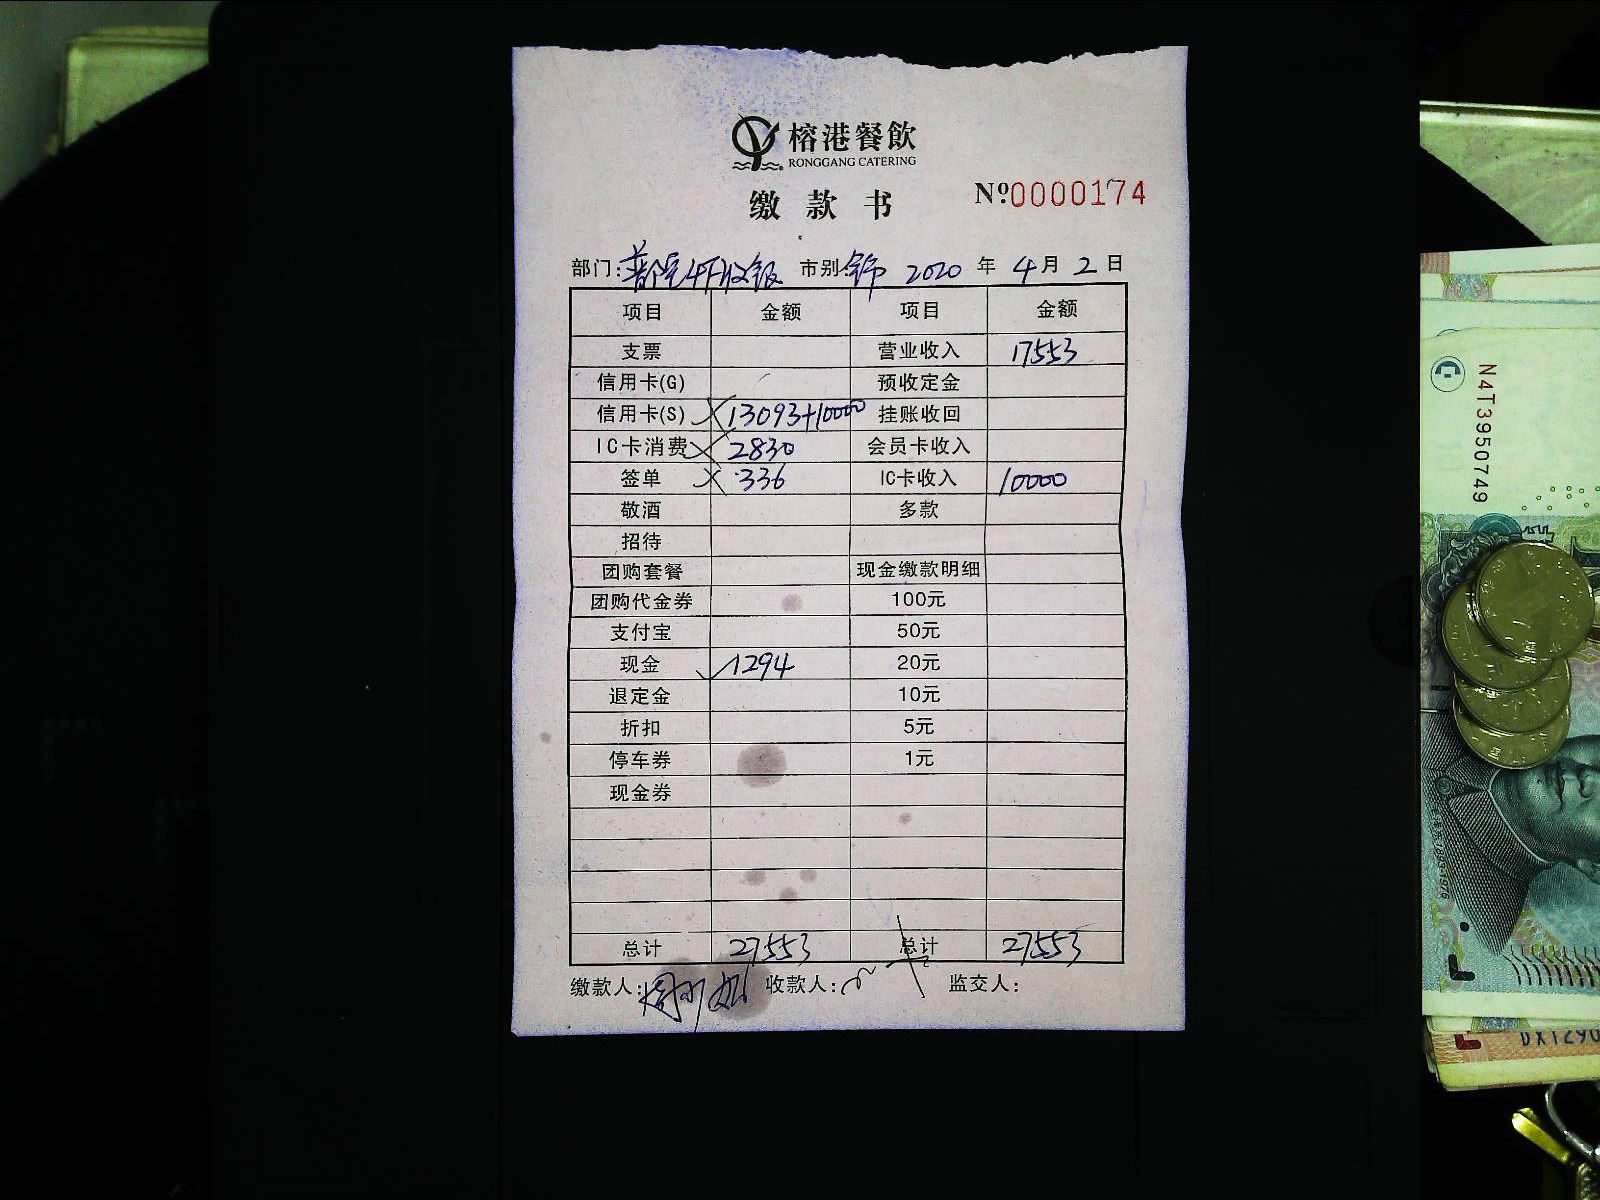 榕港餐飲
RONGGANG CATERING
缴款书
Nº0000174
部门: 市别 2020年4月2日
项目 金额 项目 金额
支票 营业收入 17553
信用卡(G) 预收定金
信用卡(S) 13093+10000 挂账收回
IC卡消费 2830 会员卡收入
签单 336 IC卡收入 10000
敬酒 多款
招待
团购套餐 现金缴款明细
团购代金券 100元
支付宝 50元
现金 1294 20元
退定金 10元
折扣 5元
停车券 1元
现金券
总计 27553 总计 27553
缴款人: 收款人: 监交人:
N4T3950749